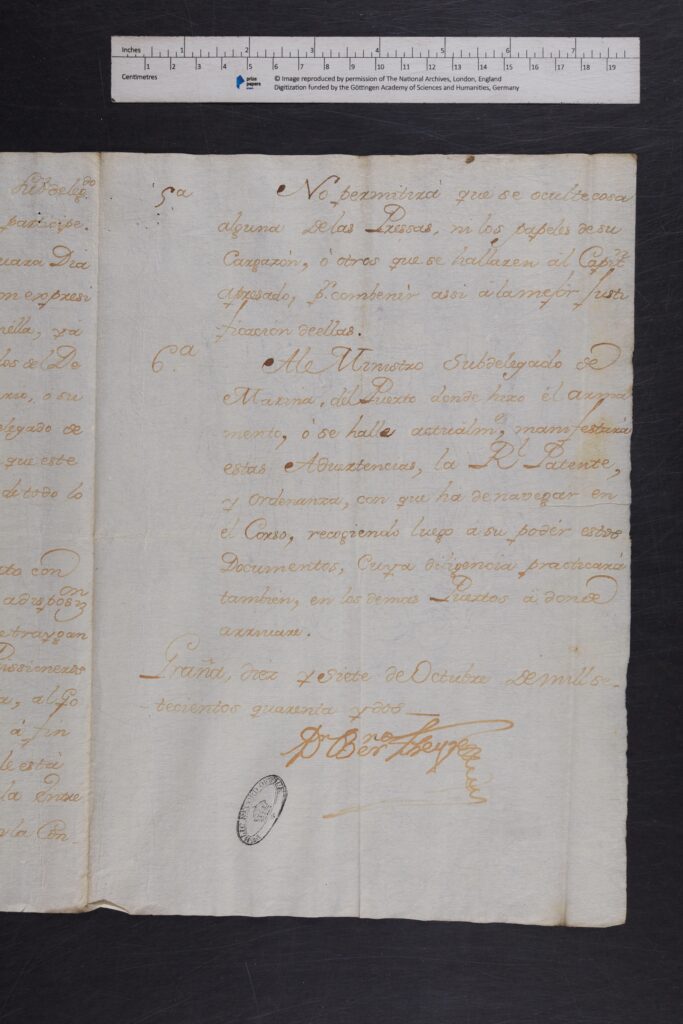 Inches 1 2 3 4 5 6 7
1 2 3 4 5 6 7 8 9 10 11 12 13 14 15 16 17 18 19
Centimetres
prize papers
© Image reproduced by permission of The National Archives, London, England
Digitization funded by the Göttingen Academy of Sciences and Humanities, Germany
Subdelegdo
participe.
Dia
n expresi
nilla, ya
los del De
ario, o su
elegado de
que este
de todo lo
to con
a disposon
e traygan
Prissioneros
a, al Go
à fin
le està
la entre
n la Con-
5a No permitirà que se oculte cosa
alguna de las Pressas, ni los papeles de su
Cargazòn, ò otros que se hallaren al Capitn
apresado, pr. combenir assi à la mejor Justi
ficacion de ellas.
6.a Al Ministro Subdelegado de
Marina, del Puerto donde hizo èl arma
mento, ò se halle actualmte, manifestarà
estas Advertencias, la Rl Patente,
y Ordenanza, con que ha de navegar en
èl Corso, recogiendo luego a su podèr estos
Documentos, Cuya diligencia practicarà
tambièn, en los demas Puertos à donde
arrivare.
Graña, diez y siete de Octubre de mill se-
tecientos quarenta y dos
Dr Berno Freyre
PUBLIC RECORD OFFICE